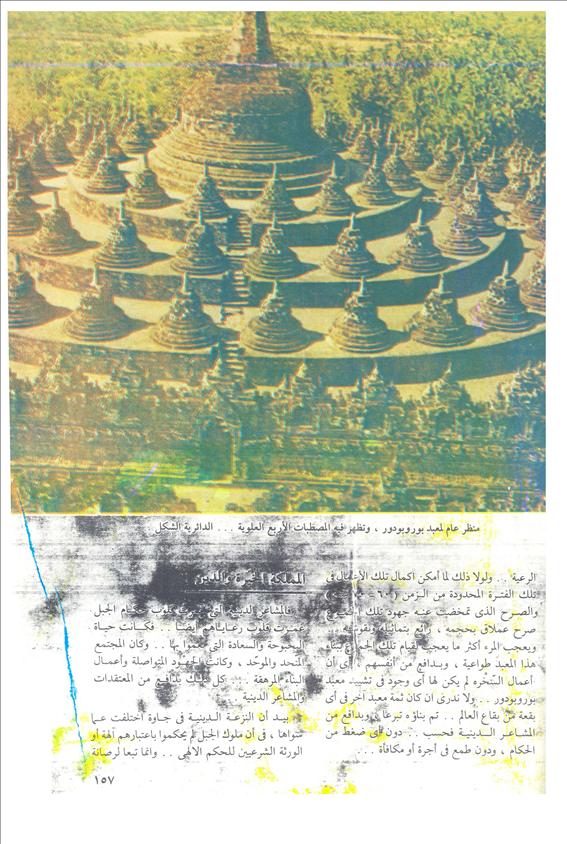 منظر عام لمعبد بوروبودور ، وتظهر فيه المصطبات الأربع العلوية ... الدائرية الشكل .
الرعية .. ولولا ذلك لما أمكن اكمال تلك الأعمال فى
تلك الفترة المحدودة من الزمن
والصرح الذى تمخضت عنه جهود تلك
صرح عملاق بحجمه ، رائع بتماثيله ونقوشه
ويعجب المرء أكثر ما يعجب لقيام تلك الجموع ببناء
هذا المعبد طواعية ، وبدافع من أنفسهم . أى أن
أعمال السخره لم يكن لها أى وجود فى تشييد معبد
بوروبودور .. ولا ندرى ان كان ثمة معبد آخر فى أى
بقعة من بقاع العالم .. تم بناؤه تبرعا وبدافع من
المشاعر الدينية فحسب .. دون أى ضغط من
الحكام ، ودون طمع فى أجرة أو مكافأة ...
المملكة الخيرة والدين
فالمشاعر الدينية التى قلوب حكام الجبل
غمرت قلوب رعاياهم أيضا .. فكانت حياة
البحبوحة والسعادة التى بها .. وكان المجتمع
المتحد والموحد ، وكانت الجهود المتواصلة وأعمال
البناء المرهقة .. كل ذلك بدافع من المعتقدات
والمشاعر الدينية ..
بيد أن النزعة الدينية فى جاوة اختلفت عـا
سواها ، فى أن ملوك الجبل لم يحكموا باعتبارهم آلهة أو
الورثة الشرعيين للحكم الالهى .. وانما تبعا لرصانة
١٥٧